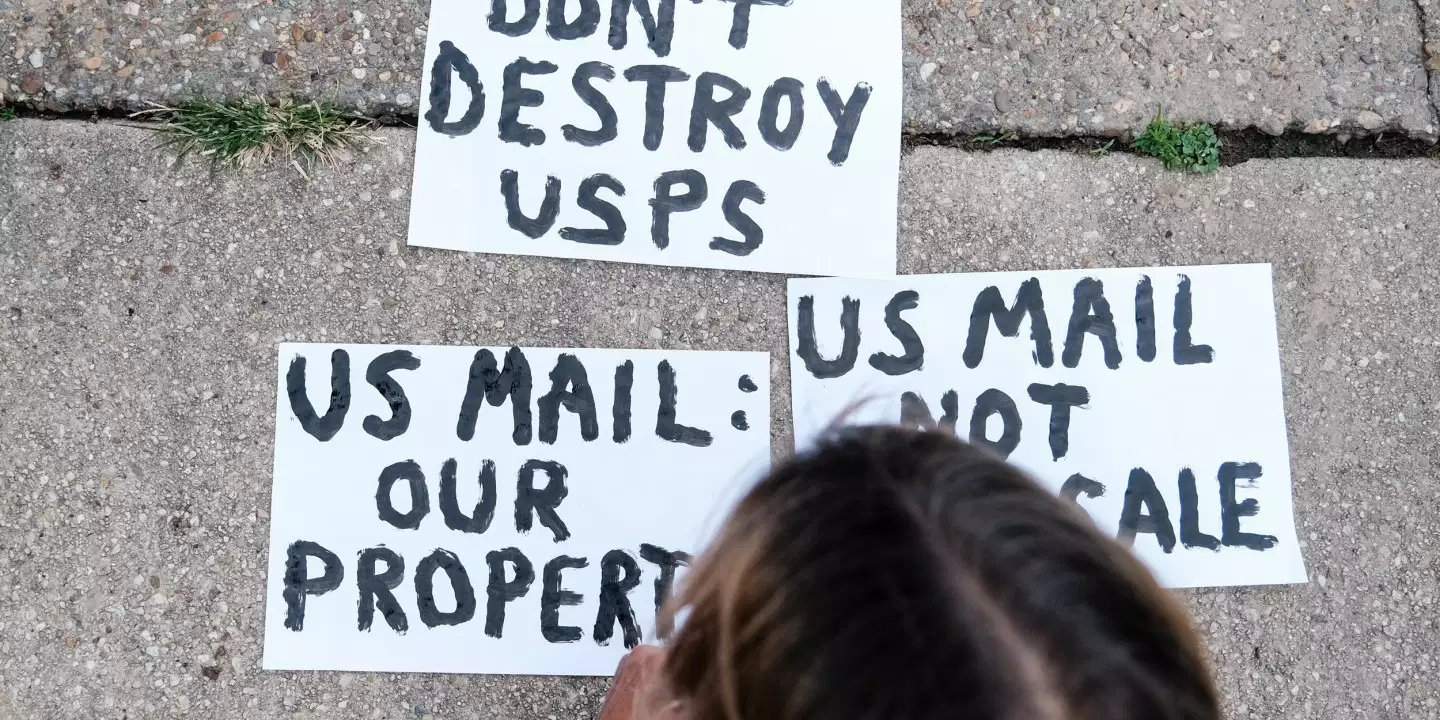 DON'T
DESTROY
USPS
US MAIL:
OUR
PROPERT
US MAIL
NOT
SALE